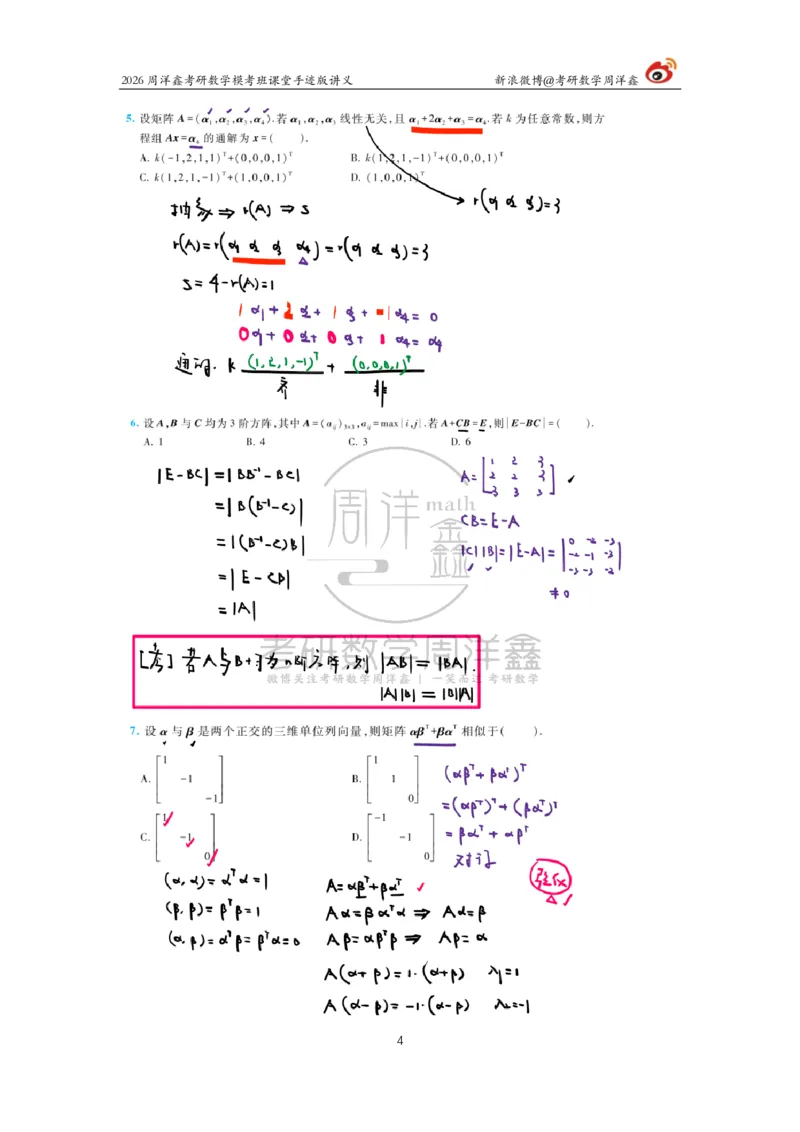 2026 周洋鑫考研数学模考班课堂手迹版讲义 新浪微博@考研数学周洋鑫
5. 设矩阵 A=(α₁,α₂,α₃,α₄).若 α₁,α₂,α₃ 线性无关,且 α₁+2α₂+α₃=α₄.若 k 为任意常数,则方
程组 Ax=α₄ 的通解为 x=( ).
A. k(-1,2,1,1)ᵀ+(0,0,0,1)ᵀ B. k(1,2,1,-1)ᵀ+(0,0,0,1)ᵀ
C. k(1,2,1,-1)ᵀ+(1,0,0,1)ᵀ D. (1,0,0,1)ᵀ
抽象 ⇒ r(A) ⇒ s r(α₁ α₂ α₃)=3
r(A)=r(α₁ α₂ α₃ α₄)=r(α₁ α₂ α₃)=3
s=4-r(A)=1
1α₁+2α₂+1α₃+-1α₄=0
0α₁+0α₂+0α₃+1α₄=α₄
通解. k(1,2,1,-1)ᵀ+(0,0,0,1)ᵀ
齐 非
6. 设 A,B 与 C 均为 3 阶方阵,其中 A=(aᵢⱼ)₃ₓ₃,aᵢⱼ=max{i,j}.若 A+CB=E,则|E-BC|=( ).
A. 1 B. 4 C. 3 D. 6
|E-BC|=|BB⁻¹-BC|
=|B(B⁻¹-C)|
=|(B⁻¹-C)B|
=|E-CB|
=|A|
A=[1 2 3
2 2 3
3 3 3]
CB=E-A
|C||B|=|E-A|=|0 -2 -3
-2 -1 -3
-3 -3 -2|
≠0
周洋鑫 math
考研数学周洋鑫
微博关注考研数学周洋鑫 | 一笑而过 考研数学
[考] 若A与B均为n阶方阵,则 |AB|=|BA|.
|A||B|=|B||A|
7. 设 α 与 β 是两个正交的三维单位列向量,则矩阵 αβᵀ+βαᵀ 相似于( ).
A. [1
-1
-1]
B. [1
1
0]
C. [1
-1
0]
D. [-1
-1
0]
(αβᵀ+βαᵀ)ᵀ
=(αβᵀ)ᵀ+(βαᵀ)ᵀ
=βαᵀ+αβᵀ
对称
(α,α)=αᵀα=1
(β,β)=βᵀβ=1
(α,β)=αᵀβ=βᵀα=0
A=αβᵀ+βαᵀ
Aα=βαᵀα ⇒ Aα=β
Aβ=αβᵀβ ⇒ Aβ=α
A(α+β)=1·(α+β) λ₁=1
A(α-β)=-1·(α-β) λ₂=-1
4